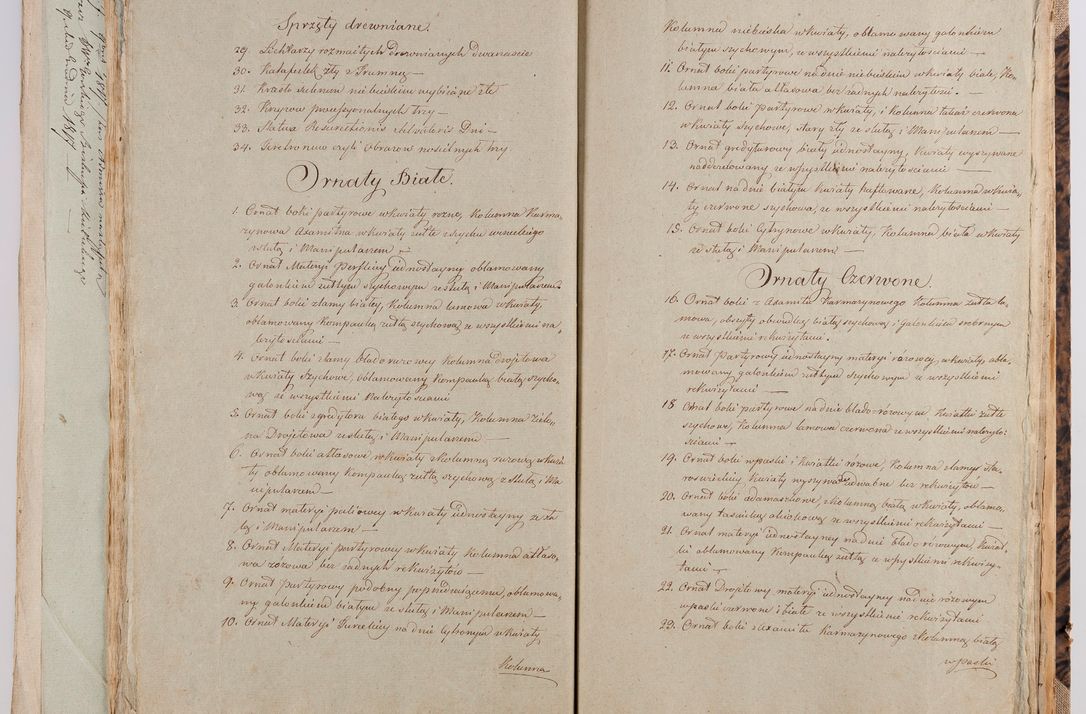 Sprzęty drewniane.
29. Lichtarzy rozmaitych drewnianych dwanascie
30. Katafielek zły z Trumną —
31. Krzesło suknem niebieskiem wybiiane złe
32. Krzyzow processyonalnych trzy —
33. Statua Resurectionis Salvatoris Dni —
34. Feretronow czyli Obrazow nosielnych trzy
Ornaty Białe.
1. Ornat boki partyrowe w kwiaty rozne, Kolumna Karma,,
zynowa Axamitna w kwiaty żułte z szychu weneckiego
z stułą, i Manipularzem —
2. Ornat Materyi Perskiey iednostayny oblamowany
galonkiem żułtym szychowym ze stułą i Manipularzem
3. Ornat boki z lamy białey, Kolumna lamowa w kwiaty,
oblamowany Kompanką żułtą szychową ze wszystkiemi na,,
leżytosciami —
4. Ornat boki z lamy blado ruzowey Kolumna drojetowa
w kwiaty Szychowe, oblamowany Kompanką białą szycho,,
wą ze wszystkiemi Należytosciami
5. Ornat boki z gredytoru białego w kwiaty, Kolumna zielo,,
na Drojetowa ze stułą i Manipularzem —
6. Ornat boki atłasowe w kwiaty z kolumną ruzową w kwia,,
ty oblamowany Kompanką żułtą szychową z stułą, i Ma
nipularzem —
7. Ornat materyi paliowey w kwiaty iednostayny ze stu
łą i Manipularzem —
8. Ornat Materyi partyrowey w kwiaty Kolumna atłaso,,
wa rozowa bez żadnych rekwizytów —
9. Ornat partyrowy podobny poprzedzaiącemu, oblamowa,,
ny galonkiem białym ze stułą i Manipularzem —
10. Ornat Materyi Tureckiey na dnie cytrynym w kwiaty
Kolumna
Kolumna niebieska w kwiaty, oblamowany galonkiem
białym szychowym, ze wszystkiemi należytosciami —
11. Ornat boki partyrowe na dnie niebieskim w kwiaty białe, Ko,,
lumna biała atłasowa bez żadnych należytosci. —
12. Ornat boki partyrowe w kwiaty, i Kolumna takaż czerwona
w kwiaty szychowe, stary zły ze stułą i Manipularzem —
13. Ornat gredyturowy biały iednostayny, Kwiaty wyszywane
nadderelowany ze wszystkiemi należytosciami —
14. Ornat na dnie białym kwiaty haftowane, Kolumna w kwia,,
ty czerwone szychowa, ze wszystkiemi należytosciami —
15. Ornat boki cytrynowe w kwiaty, Kolumna biała w kwiaty
ze stułą i Manipularzem —
Ornaty Czerwone.
16. Ornat boki z Axamitu Karmazynowego Kolumna żułta la,,
mowa, obszyty obwudką białą szychową i galonkiem srebrnym
ze wszystkiemi rekwizytami.
17. Ornat Partyrowy iednostayny materyi rozowey, w kwiaty, obla,,
mowany galonkiem żułtym szychowym ze wszystkiemi
rekwizytami —
18 Ornat boki partyrowe na dnie blado-rózowym Kwiatki żułte
szychowe, Kolumna lamowa czerwona ze wszystkiemi należyto,,
sciami —
19. Ornat boki w paski i kwiatki rózowe, Kolumna z lamy sta,,
roswieckiey kwiaty wyszywane iedwabne bez rekwizytów —
20. Ornat boki adamaszkowe, z Kolumną białą w kwiaty, oblamo,,
wany tasiemką ze wszystkiemi rekwizytami —
21. Ornat materyi iednostayney na dnie blado rózowym, Kwiat,,
ki oblamowany Kompanką żułtą, ze wszystkiemi rekwizy,,
tami —
22. Ornat Drojetowy materyi iednostayney na dnie rózowym
w paski czerwone i białe ze wszystkiemi rekwizytami
23. Ornat boki z Axamitu Karmazynowego z kolumną białą
w paski